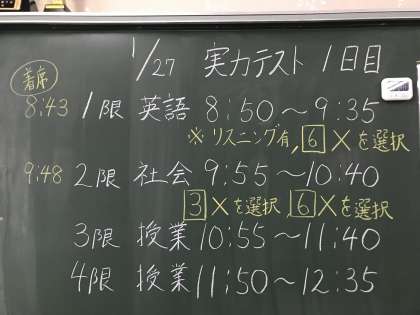 1/27 実力テスト 1日目
着席
8:43 1限 英語 8:50〜9:35
※リスニング有, 6 Xを選択
9:48 2限 社会 9:55〜10:40
3 Xを選択 6 Xを選択
3限 授業 10:55〜11:40
4限 授業 11:50〜12:35